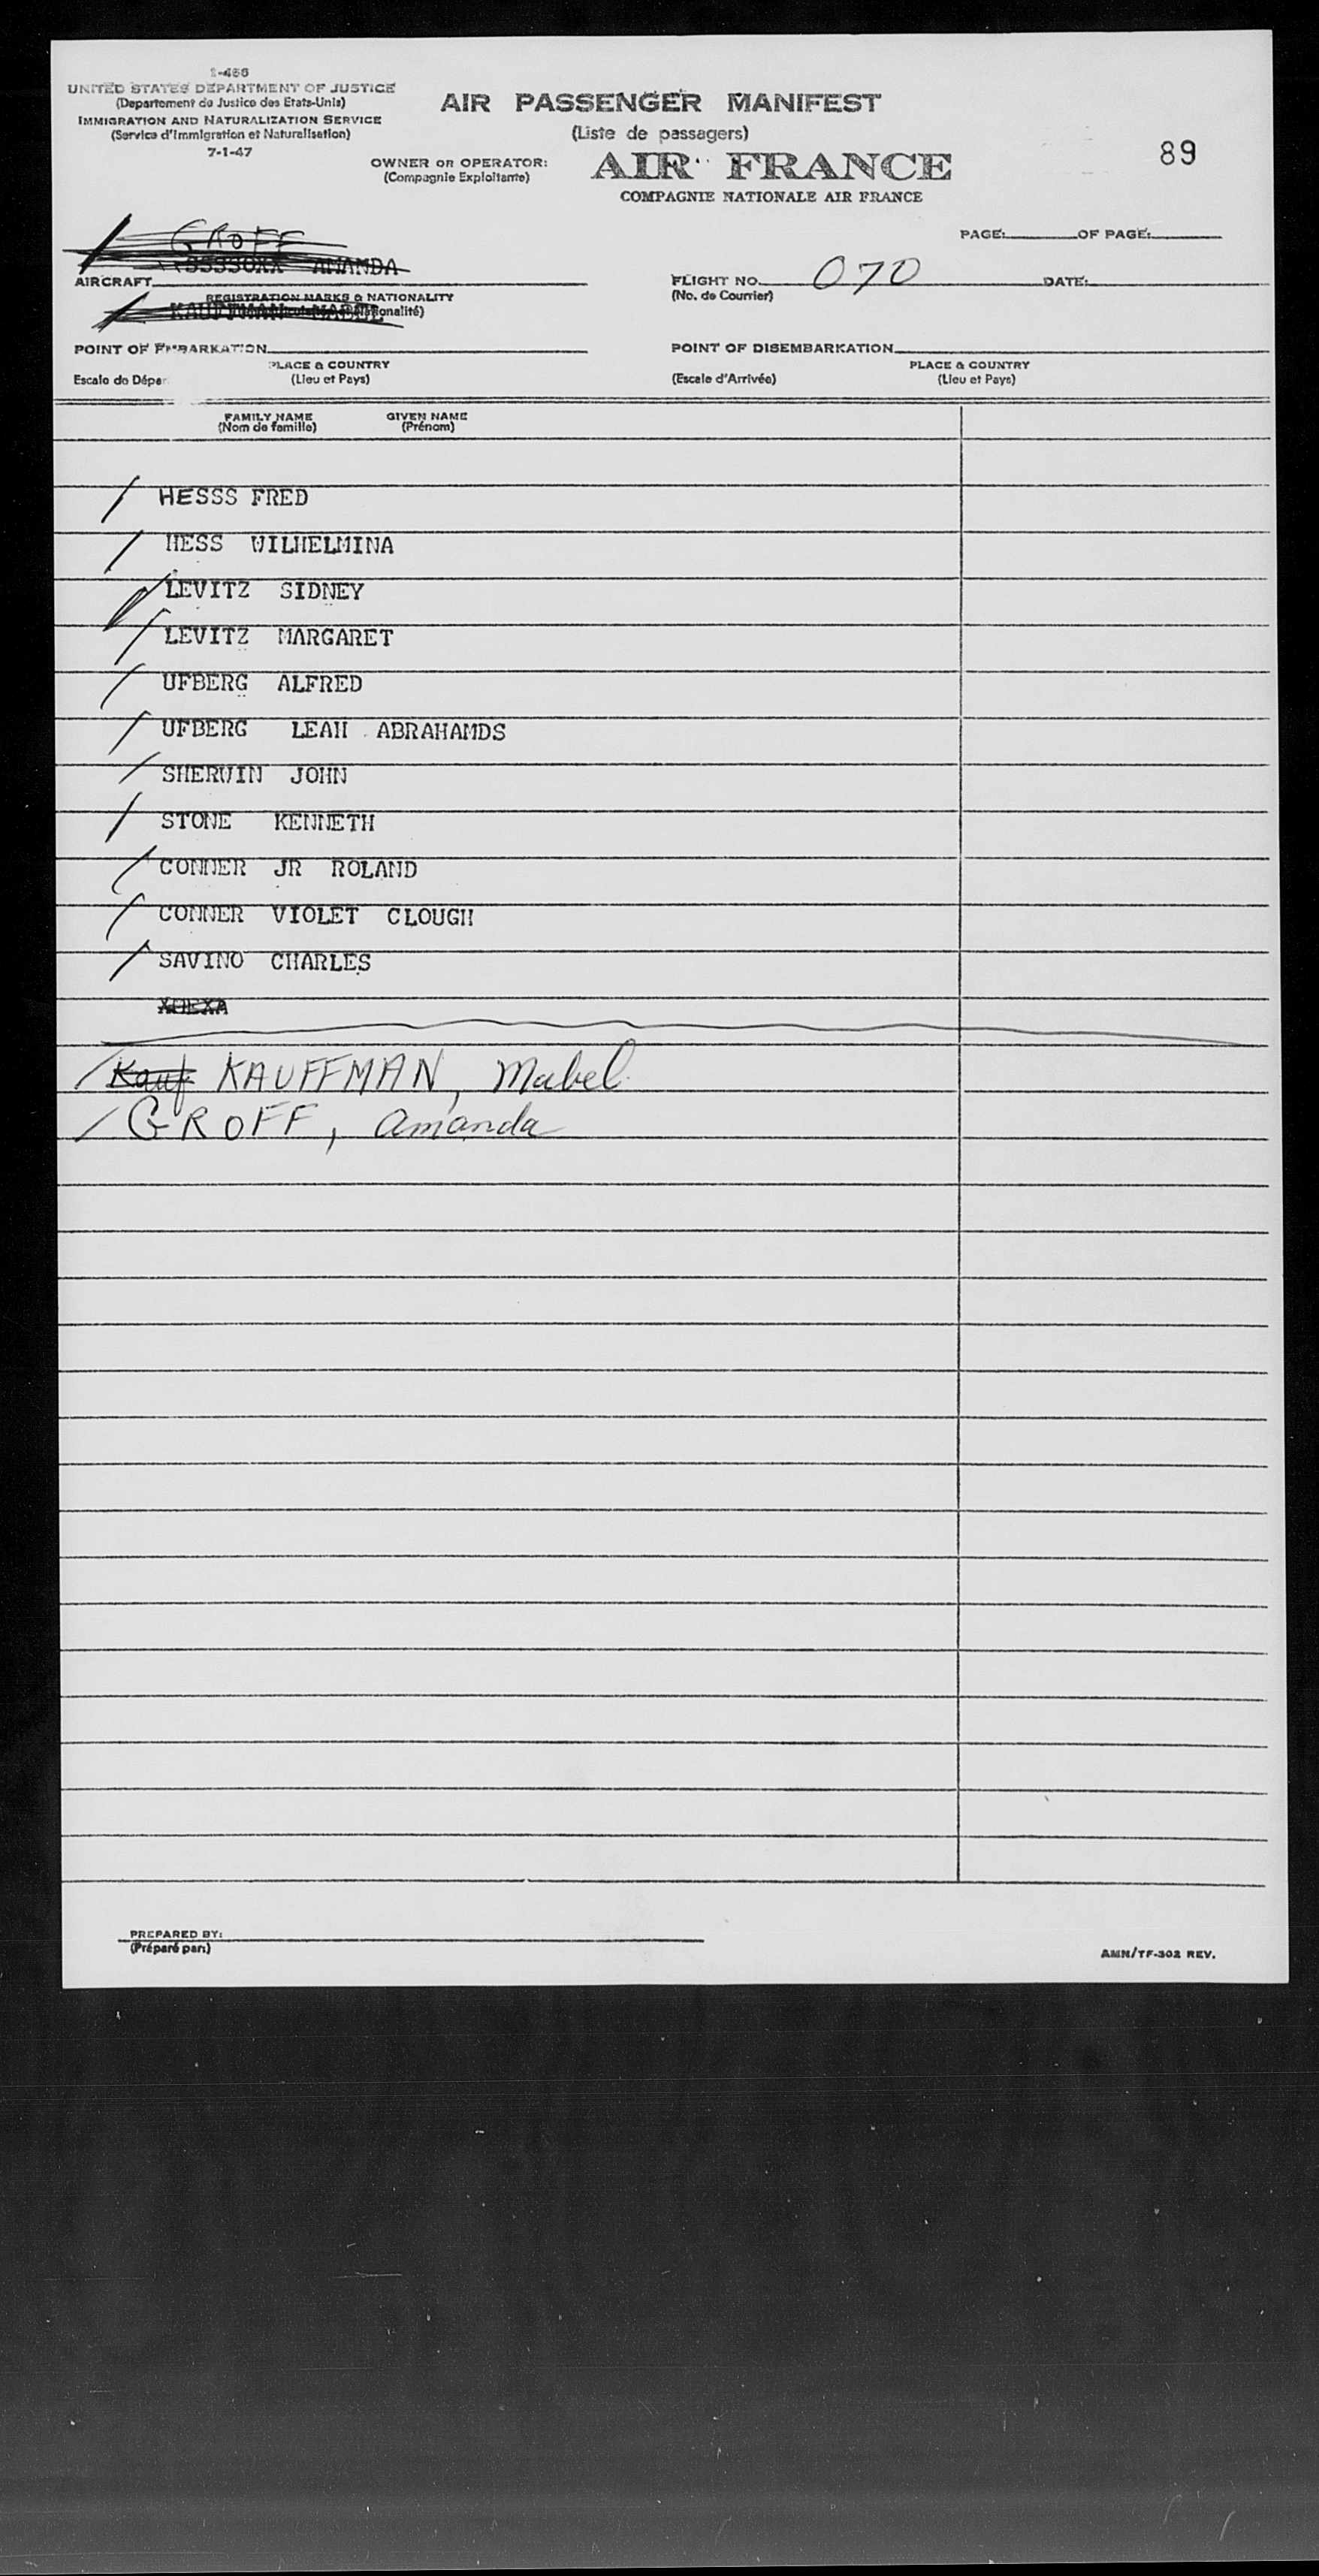 I-466
UNITED STATES DEPARTMENT OF JUSTICE
(Departement de Justice des Etats-Unis)
IMMIGRATION AND NATURALIZATION SERVICE
(Service d'Immigration et Naturalisation)
7-1-47
AIR PASSENGER MANIFEST
(Liste de passagers)
OWNER OR OPERATOR:
(Compagnie Exploitante)
AIR FRANCE
COMPAGNIE NATIONALE AIR FRANCE
89
PAGE: OF PAGE:
GROFF
AMANDA
AIRCRAFT
REGISTRATION MARKS & NATIONALITY
KAUFFMAN MABEL
FLIGHT NO. 070 DATE:
(No. de Courrier)
POINT OF EMBARKATION
PLACE & COUNTRY
Escale de Dépar (Lieu et Pays)
POINT OF DISEMBARKATION
PLACE & COUNTRY
(Escale d'Arrivée) (Lieu et Pays)
FAMILY NAME GIVEN NAME
(Nom de famille) (Prénom)
HESSS FRED
HESS WILHELMINA
LEVITZ SIDNEY
LEVITZ MARGARET
UFBERG ALFRED
UFBERG LEAH ABRAHAMDS
SHERWIN JOHN
STONE KENNETH
CONNER JR ROLAND
CONNER VIOLET CLOUGH
SAVINO CHARLES
Kauf KAUFFMAN, Mabel
GROFF, Amanda
PREPARED BY:
(Préparé par:)
AMN/TF-302 REV.